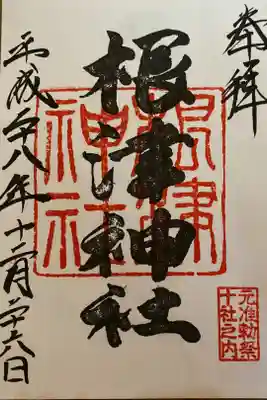 奉拝
元准勅祭
十社之内
根津神社
根津
神社
平成廿八年十二月廿六日